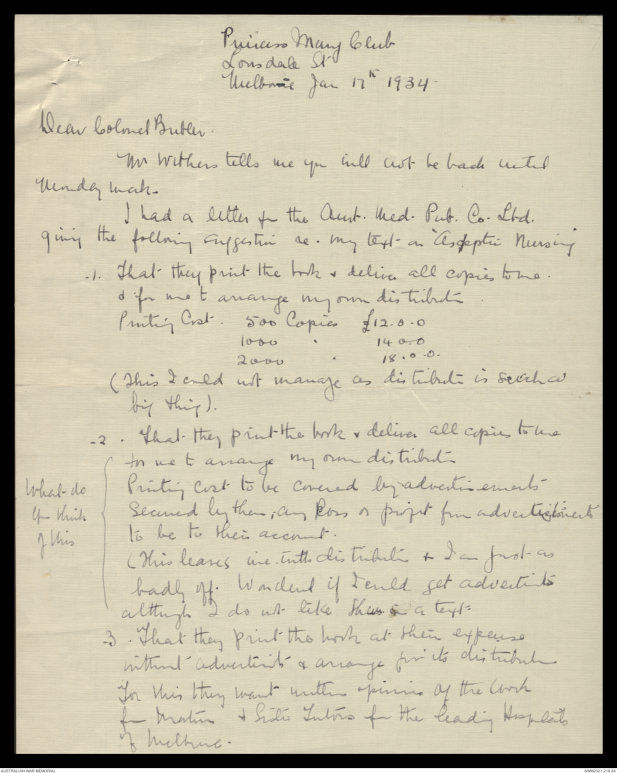 Princess Mary Club
Lonsdale St
Melborne Jan 17th 1934.
Dear Colonel Butler.
Mr Withers tells me you will not be back until
Monday week.
I had a letter fr the Aust. Med. Pub. Co. Ltd.
giving the following suggestion re. my text on "Aseptic Nursing"
-1. That they print the book & deliver all copies to me.
& for me to arrange my own distributn.
Printing Cost. 500 Copies £12.0.0
1000 " 14.0.0
2000 " 18.0.0.
(This I could not manage as distributn is such a
big thing).
-2. That they print the book & deliver all copies to me
for me to arrange my own distributn
Printing Cost to be covered by advertisements
secured by them, any loss or profit from advertisements
to be to their account.
(This leaves me with distributn & I am just as
badly off. Wonderd if I could get advertists
although I do not like them in a text
What do
you think
of this
-3. That they print the book at their expense
without advertists & arrange for its distributn
For this they want written opinions of the work
from Matrons & Sister Tutors for the leading Hospitals
of Melbrne.
AUSTRALIAN WAR MEMORIAL